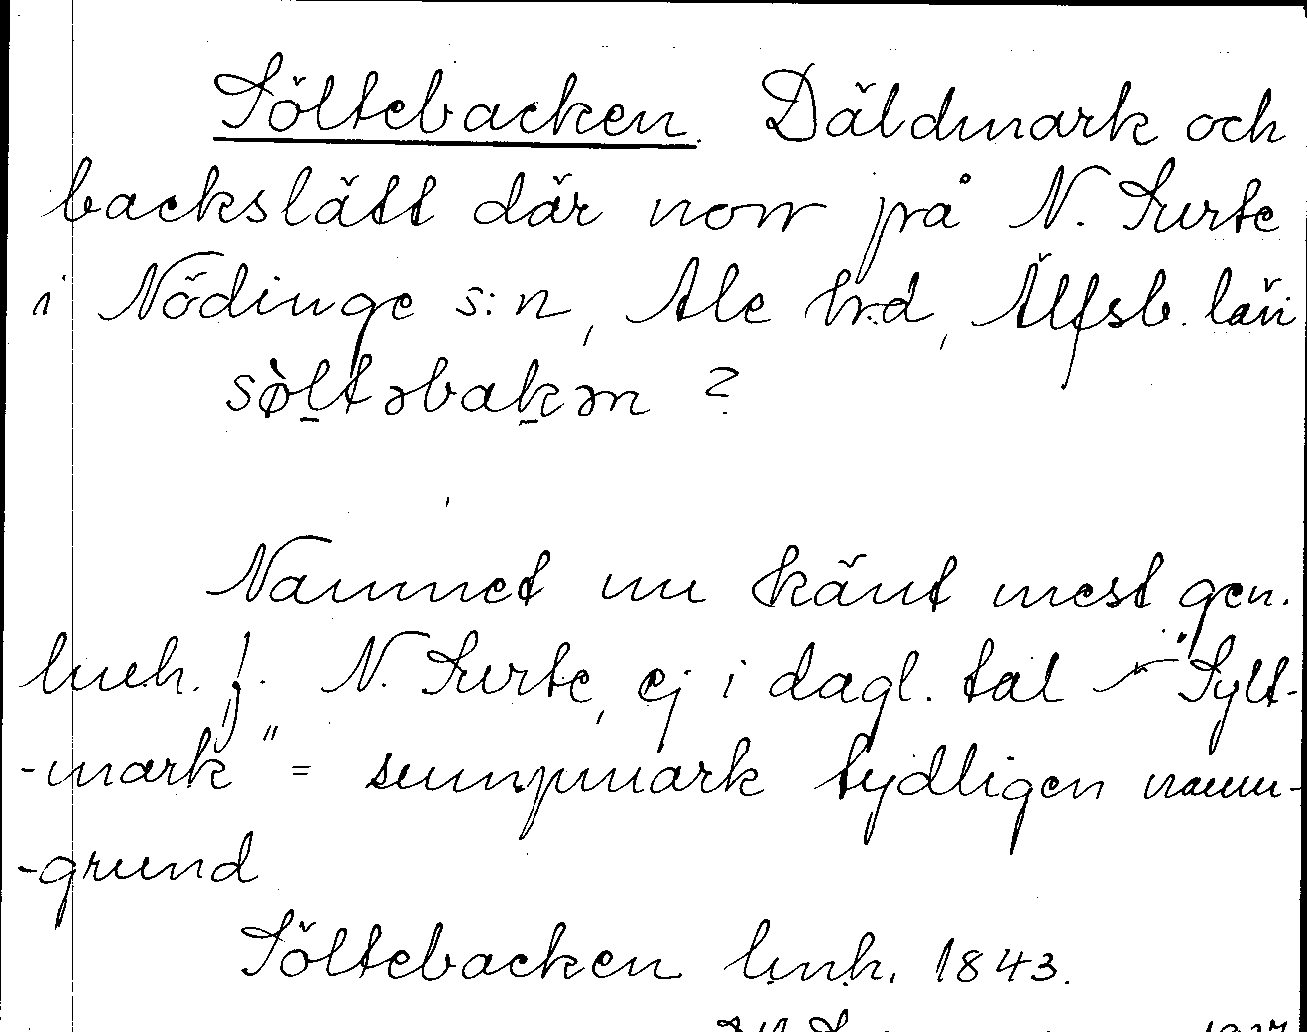 Söltebacken. Däldmark och
backslätt där norr på N. Surte
i Nödinge s:n, Ale hrd, Älfsb. län
sòltəbakən ?
Namnet nu känt mest gen.
lmh. f. N. Surte, ej i dagl. tal – "Sylt-
-mark" = sumpmark tydligen namn-
-grund
Söltebacken lmh. 1843.